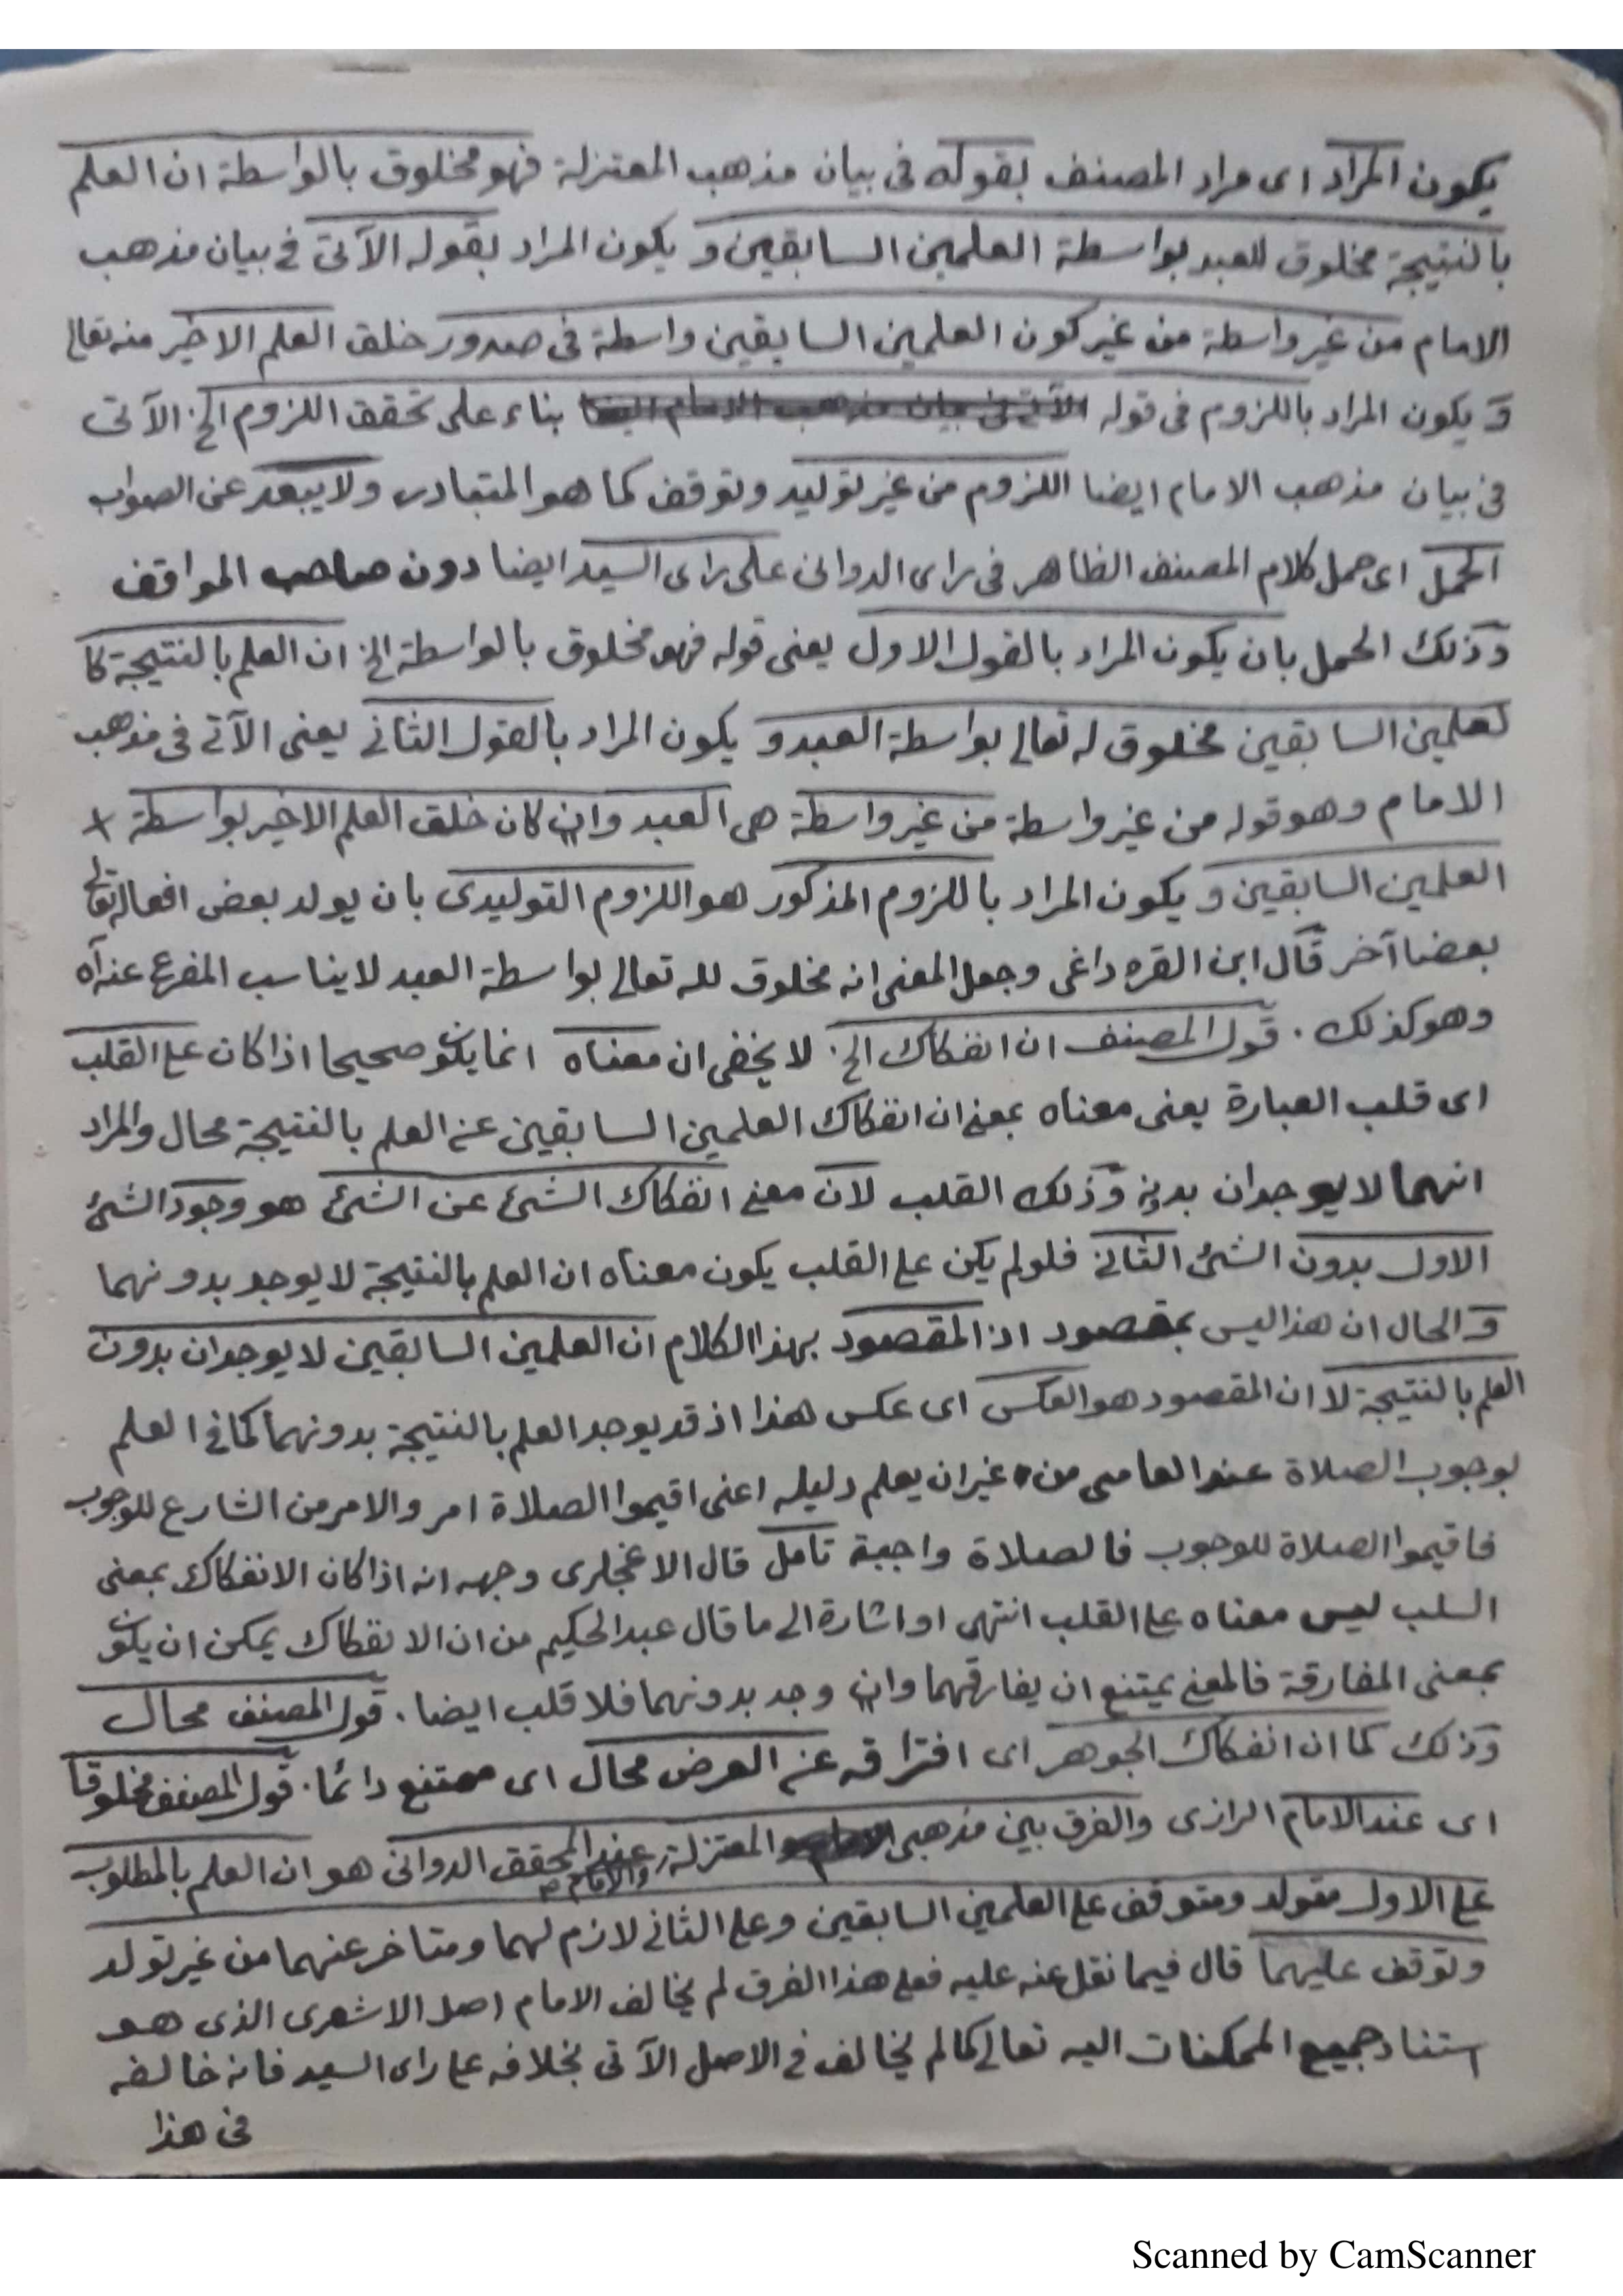 يكون المراد اى مراد المصنف بقوله فى بيان مذهب المعتزلة فهو مخلوق بالواسطة ان العلم
بالنتيجة مخلوق للعبد بواسطة العلمين السابقين و يكون المراد بقوله الآتى فى بيان مذهب
الامام من غير واسطة من غير كون العلمين السابقين واسطة فى صدور خلق العلم الاخير منه تعالى
و يكون المراد باللزوم فى قوله بناء على تحقق اللزوم الخ الآتى
فى بيان مذهب الامام ايضا اللزوم من غير توليد وتوقف كما هو المتبادر ولا يبعد عن الصواب
الحمل اى حمل كلام المصنف الظاهر فى راى الدوانى على راى السيد ايضا دون صاحب المواقف
وذلك الحمل بان يكون المراد بالقول الاول يعنى قوله فهو مخلوق بالواسطة الخ ان العلم بالنتيجة كا
لعلمين السابقين مخلوق له تعالى بواسطة العبد و يكون المراد بالقول الثانى يعنى الآتى فى مذهب
الامام وهو قوله من غير واسطة من غير واسطة هى العبد وان كان خلق العلم الاخير بواسطة +
العلمين السابقين و يكون المراد باللزوم المذكور هو اللزوم التوليدى بان يولد بعض افعاله تعالى
بعضا آخر قال ابن القره داغى وجعل المعنى انه مخلوق لله تعالى بواسطة العبد لا يناسب المفرع عنه اه
وهو كذلك . قول المصنف ان انفكاك الخ لا يخفى ان معناه انما يكون صحيحا اذا كان على القلب
اى قلب العبارة يعنى معناه بمعنى ان انفكاك العلمين السابقين عن العلم بالنتيجة محال والمراد
انهما لا يوجدان بدونه وذلك القلب لان معنى انفكاك الشئ عن الشئ هو وجود الشئ
الاول بدون الشئ الثانى فلو لم يكن على القلب يكون معناه ان العلم بالنتيجة لا يوجد بدونهما
و الحال ان هذا ليس بمقصود اذ المقصود بهذا الكلام ان العلمين السابقين لا يوجدان بدون
العلم بالنتيجة لا ان المقصود هو العكس اى عكس هذا اذ قد يوجد العلم بالنتيجة بدونهما كما فى العلم
بوجوب الصلاة عند العامى من غير ان يعلم دليله اعنى اقيموا الصلاة امر والامر من الشارع للوجوب
فاقيموا الصلاة للوجوب فالصلاة واجبة تامل قال الاغجلرى وجهه انه اذا كان الانفكاك بمعنى
السلب ليس معناه على القلب انتهى او اشارة الى ما قال عبد الحكيم من ان الانفكاك يمكن ان يكون
بمعنى المفارقة فالمعنى يمتنع ان يفارقهما وان وجد بدونهما فلا قلب ايضا . قول المصنف محال
وذلك كما ان انفكاك الجوهر اى افتراقه عن العرض محال اى ممتنع دائما . قول المصنف مخلوقا
اى عند الامام الرازى والفرق بين مذهبى المعتزلة والامام عند المحقق الدوانى هو ان العلم بالمطلوب
على الاول متولد ومتوقف على العلمين السابقين وعلى الثانى لازم لهما ومتاخر عنهما من غير تولد
وتوقف عليهما قال فيما نقل عنه عليه فعلى هذا الفرق لم يخالف الامام اصل الاشعرى الذى هو
استناد جميع الممكنات اليه تعالى كما لم يخالف فى الاصل الآتى بخلافه على راى السيد فانه خالفه
فى هذا
Scanned by CamScanner